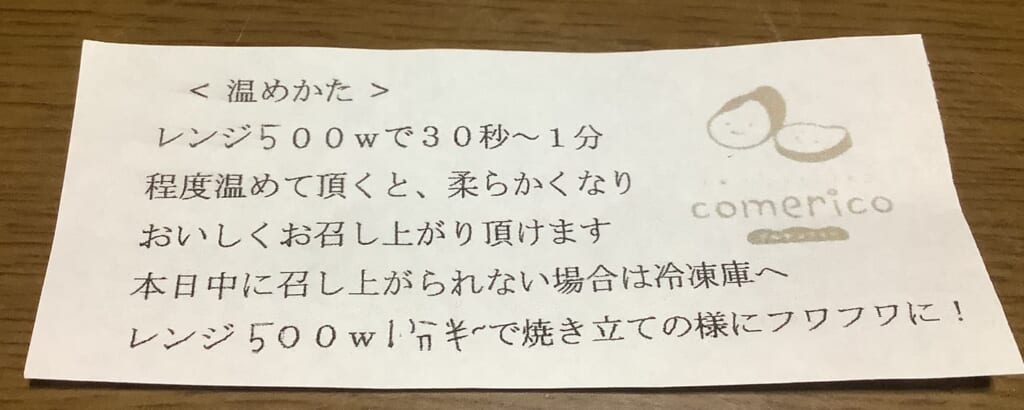 < 温めかた >
レンジ５００ｗで３０秒～１分
程度温めて頂くと、柔らかくなり
おいしくお召し上がり頂けます
本日中に召し上がられない場合は冷凍庫へ
レンジ５００ｗ1分半~で焼き立ての様にフワフワに！
comerico